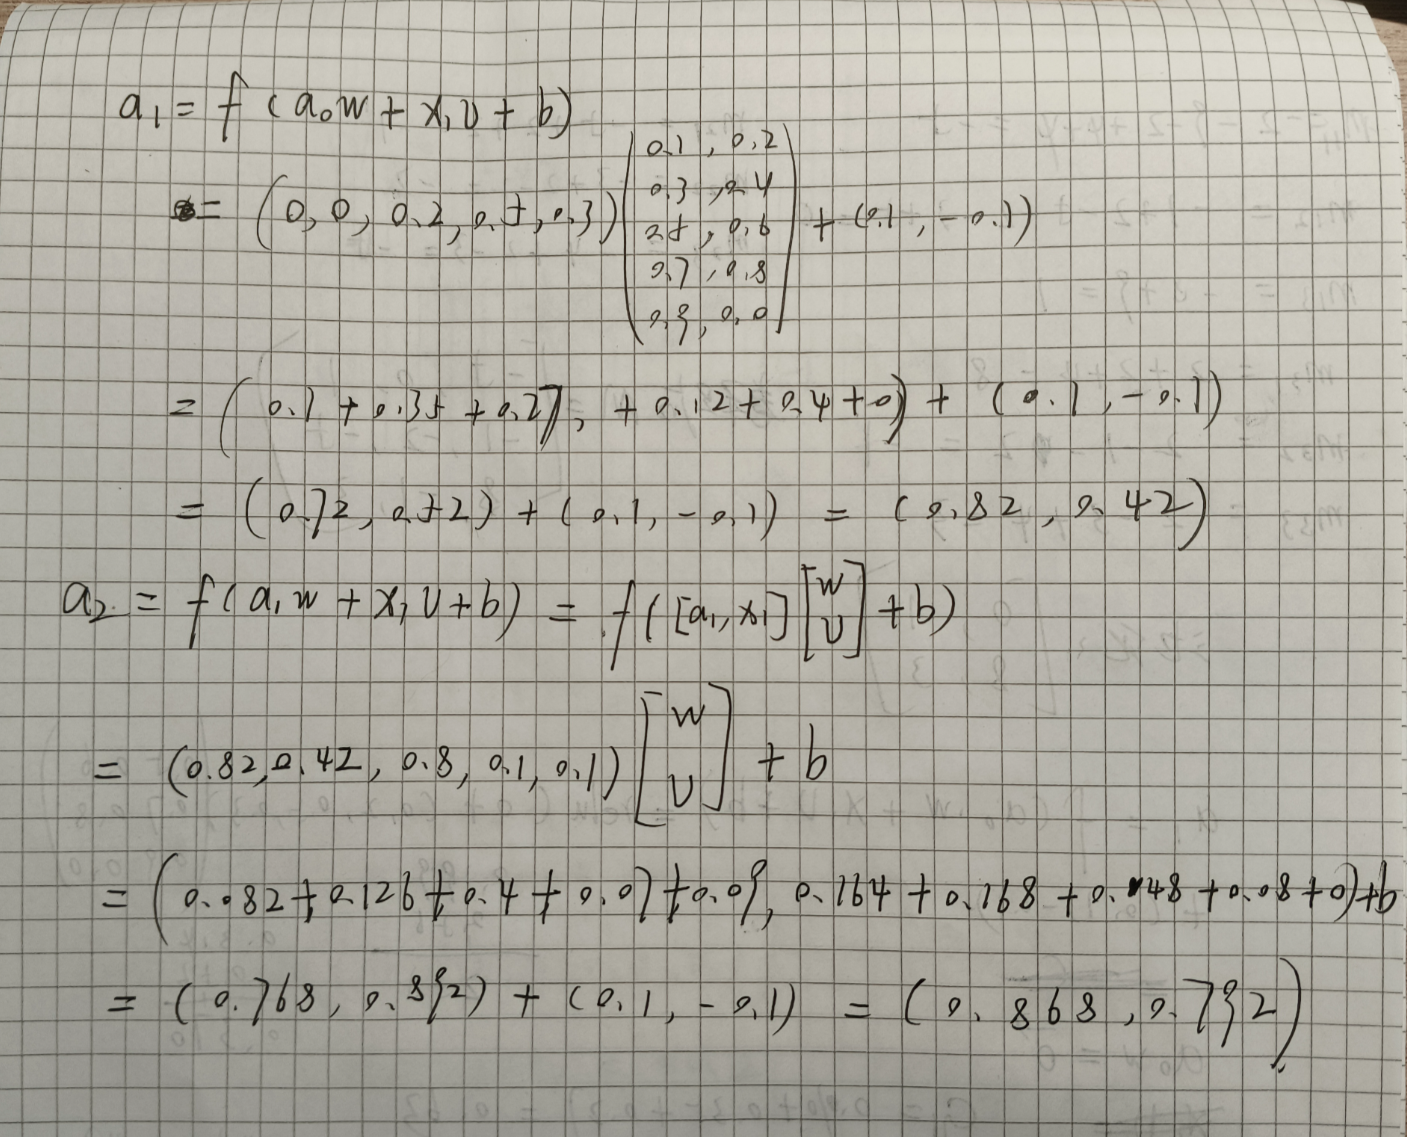 a₁ = f (a₀w + x₁U + b)
= (0, 0, 0.2, 0.5, 0.3) (0.1, 0.2
0.3, 0.4
0.5, 0.6
0.7, 0.8
0.9, 0.0) + (0.1, -0.1)
= (0.1 + 0.35 + 0.27, + 0.12 + 0.4 + 0) + (0.1, -0.1)
= (0.72, 0.52) + (0.1, -0.1) = (0.82, 0.42)
a₂ = f(a₁w + x₁U + b) = f([a₁, x₁] [w U] + b)
= (0.82, 0.42, 0.8, 0.1, 0.1) [w U] + b
= (0.082 + 0.126 + 0.4 + 0.07 + 0.09, 0.164 + 0.168 + 0.048 + 0.08 + 0) + b
= (0.768, 0.892) + (0.1, -0.1) = (0.868, 0.792)